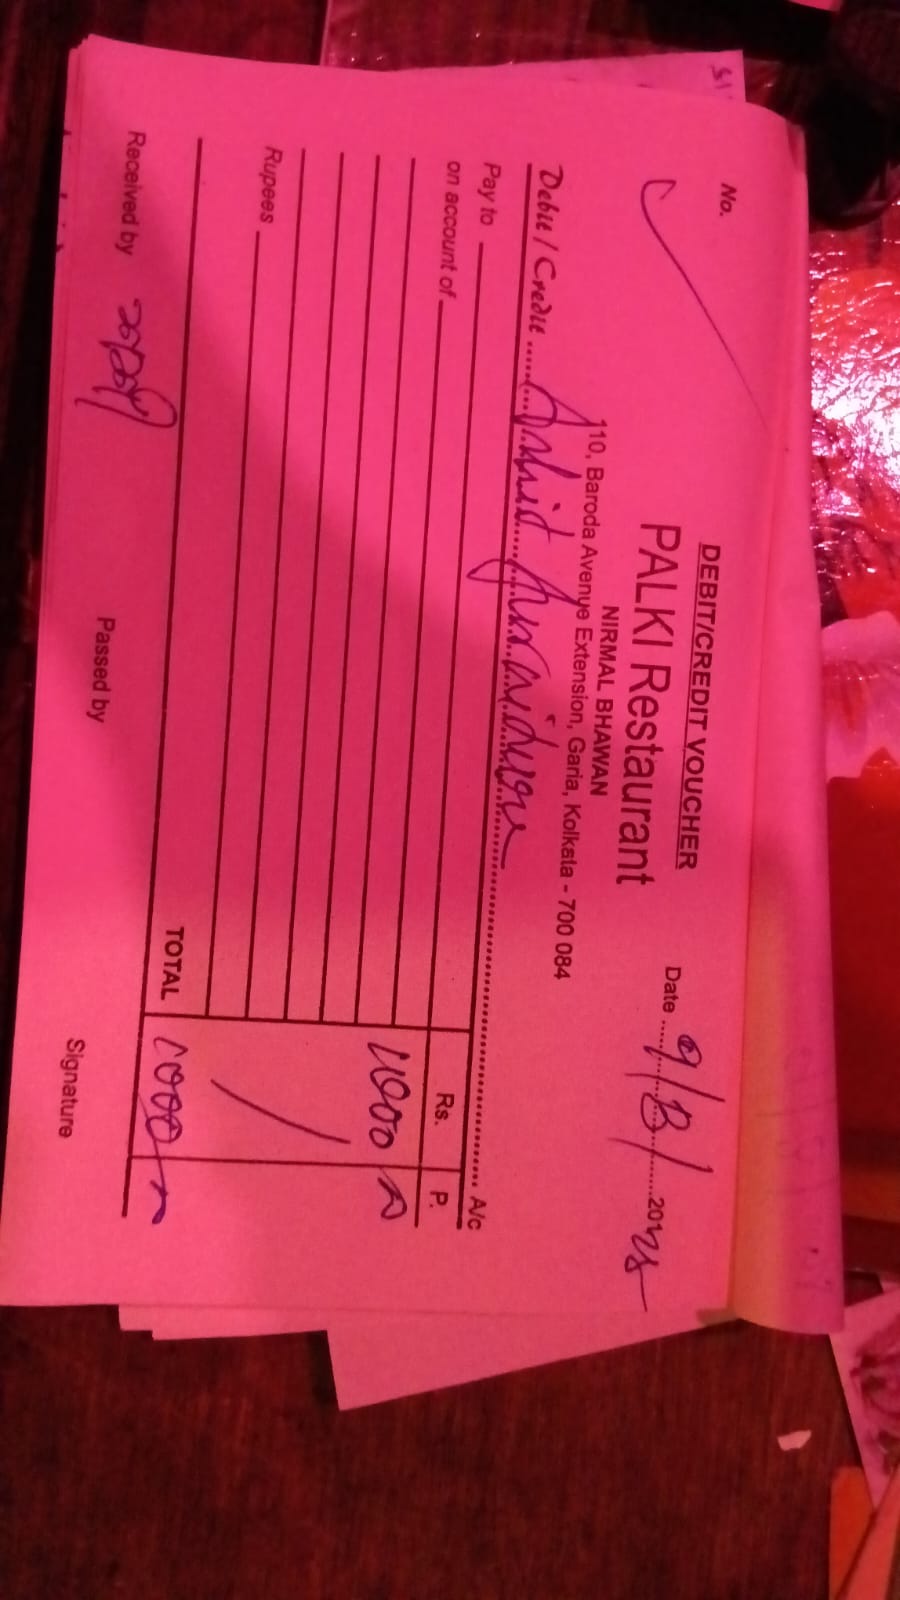 No.
DEBIT/CREDIT VOUCHER
PALKI Restaurant
NIRMAL BHAWAN
110, Baroda Avenue Extension, Garia, Kolkata - 700 084
Date 9/8/2025
Debit / Credit A/c
Pay to
on account of
Rs. P.
Rupees
TOTAL
Received by
Passed by
Signature